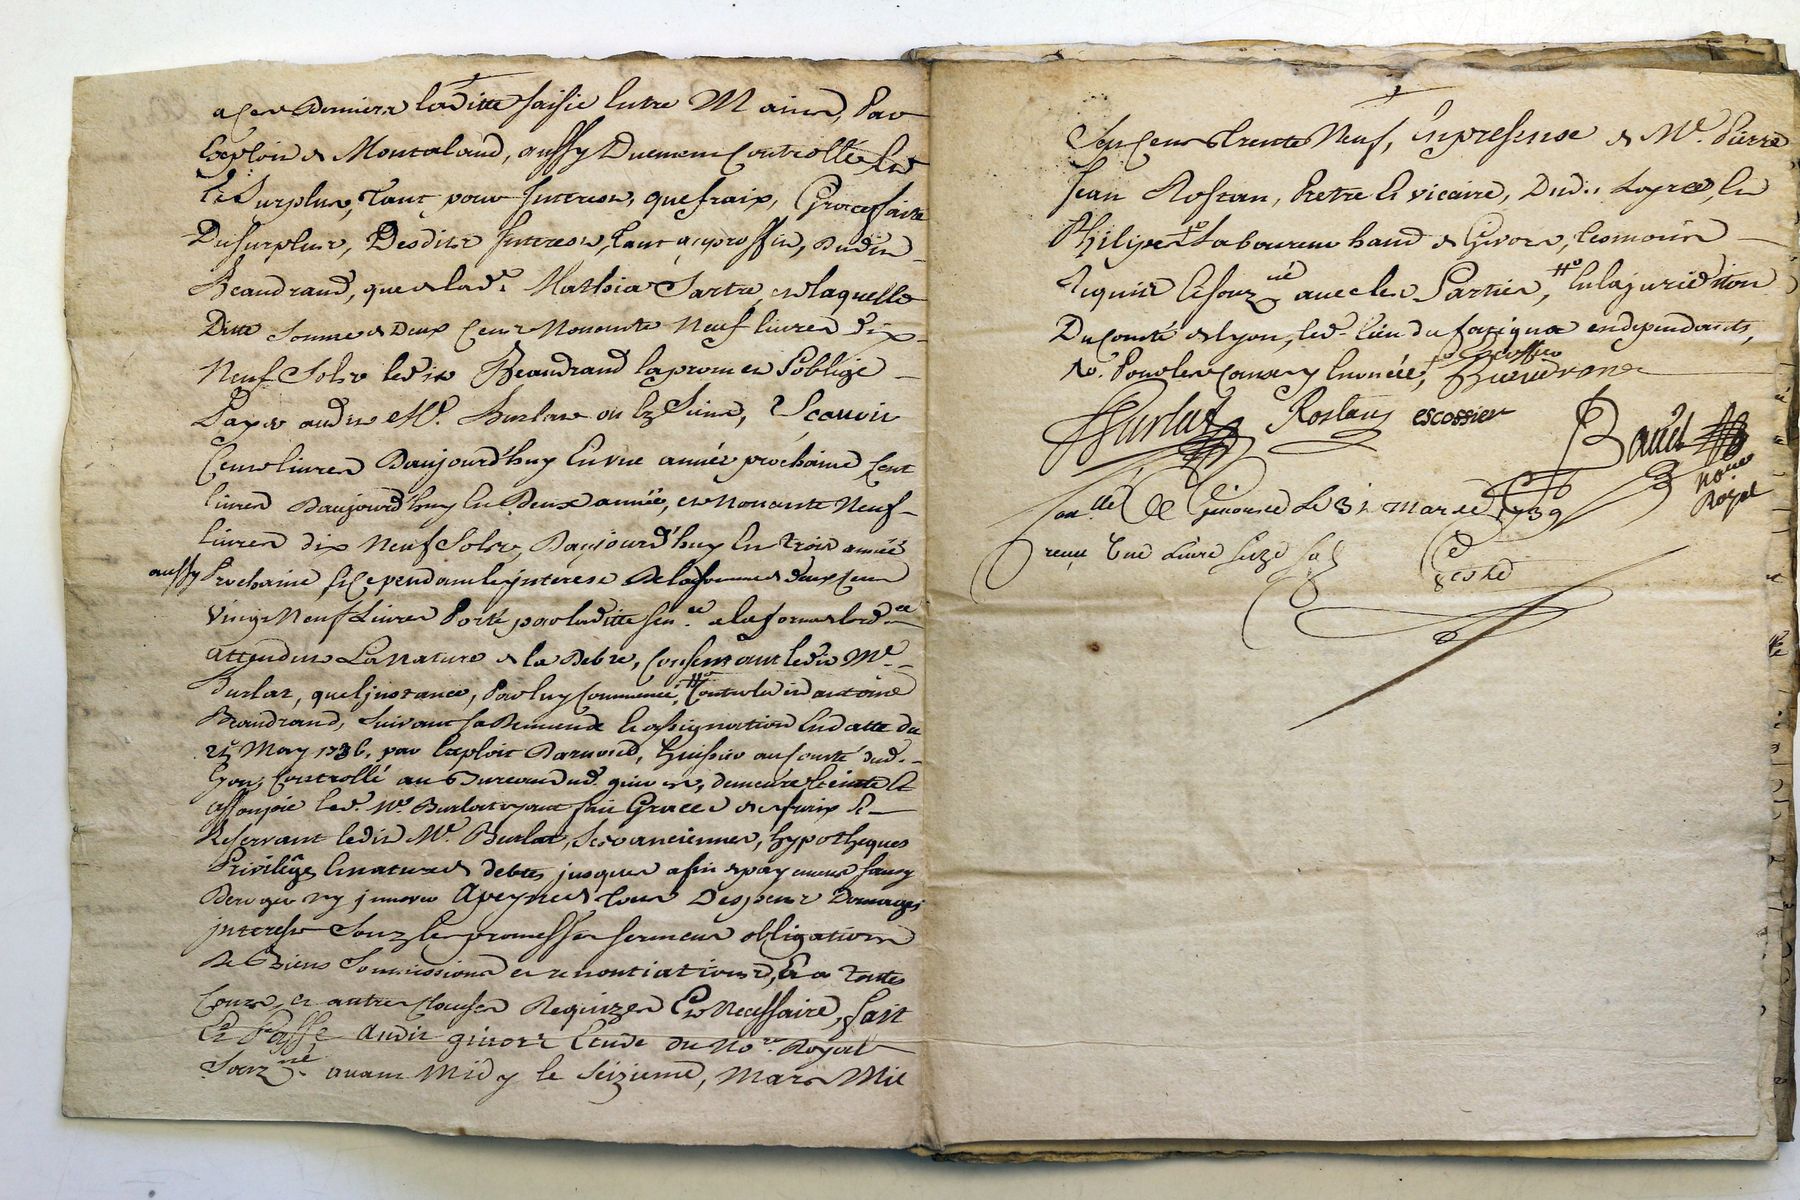 a ces derniers laditte saisie entre Mains, Par
Exploit de Montaland, aussy Duement Controllé Et
le Surplus, Tant pour Interest, que fraix, Processaire
Du surplus, Desdits Interest, tant a proffit, dudit
Beaudrand, que de lad. Mathia Sartre, et laquelle
Ditte Somme de Deux Cent Nonante Neuf livres dix
Neuf Sols ledit Beaudrand la promet et s'oblige
Payer audit Mr. Burlat ou lz Siens, Scavoir
Cent livres Daujourd'huy En une année prochaine Cent
livres Daujourd'huy En Deux année, et Nonante Neuf
livres dix Neuf Sols, Daujourd'huy En trois année
aussy Prochaine, et cependant les jnterest De la somme de deux Cent
Vingt Neuf Livres Porté par laditte sen.ce a la forme de lord.ce
attendus La nature de la Debte, Consentant ledit Mr.
Burlat, que l'jnstance, Par luy Commencé, Contre ledit antoine
Beaudrand, suivant sa Demande Et assignation En datte du
May 1736, par Exploit Darnoud, huissier au Comté dud.
Lyon, Controllé au Bureau dud. givors, demeure Eteinte Et
assoupie led. Mr. Burlat ayant fait Grace de ses fraix Se
Reservant ledit Mr. Burlat, Ses anciennes, hypotheques
Privilèges Et nature de debtes jusques a fin de payement sans y
Deroger ny jnnover a peyne de tous Despens Domages
jnterest Souz les promesses serment obligations
De Biens Soumissions et renontiations, Et a toutes
Cours, et autres clauses Requizes Et Necessaire, fait
Et Passé audit givors Etude du No.re Royal
Souz.né avant Midy le Seizieme, Mars Mil
Sept Cent Trente Neuf, En presense de Mr. Pierre
Jean Rostan, Pretre Et vicaire, Dud. Et
Philipe Laboureur habt. de Givors, temoins
requis Et souz.né avec les Parties, En la juridition
Du Comté de Lyon, led. lieu du
Pour les causes y Enoncée,
Burlat Rostan escossier
Bauet
No.re
Royal
Con.llé A Givors Le 31 mars 1739
receu Une Livre Seize sols